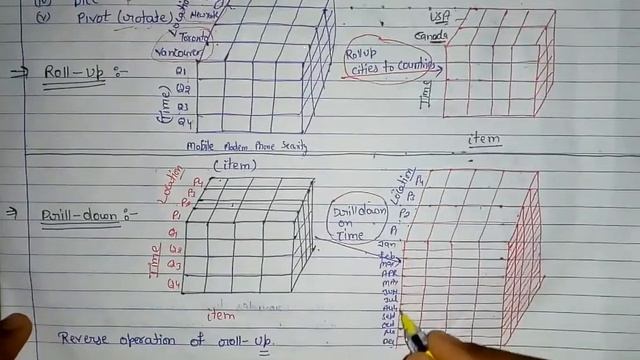 (iv) Dice
(v) Pivot (rotate)
Newyork
Toronto
Vancouver
USA
Canada
⇒ Roll-up :-
Q1
Q2
Q3
Q4
(Time)
Roll up
cities to countries
Time
Mobile Modem Phone Security
(item)
item
⇒ Drill-down :-
Location
P4
P3
P2
P1
Q1
Q2
Q3
Q4
Time
item
Drill down
on
Time
Location
P4
P3
P2
Jan
Feb
Mar
APR
May
Jun
Jul
Aug
Sep
Oct
Dec
Reverse operation of roll-up.